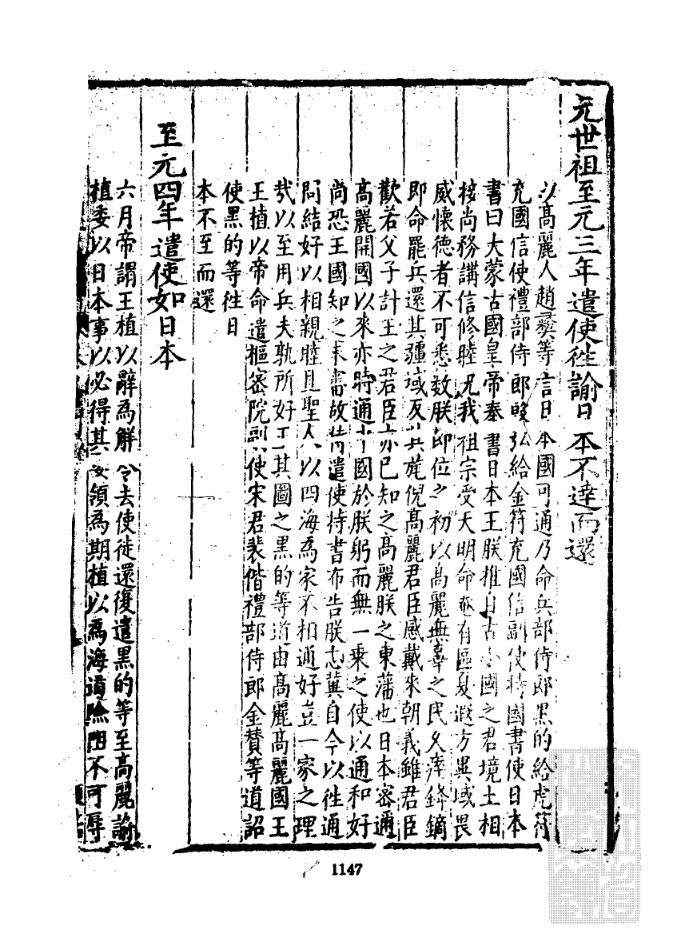 元世祖至元三年遣使往諭日本不達而還
以高麗人趙彝等言日本國可通乃命兵部侍郎黑的給虎符
充國信使禮部侍郎殷弘給金符充國信副使持國書使日本
書曰大蒙古國皇帝奉書日本王朕惟自古小國之君境土相
接尚務講信修睦况我祖宗受天明命奄有區夏遐方異域畏
威懷德者不可悉數朕即位之初以高麗無辜之民久瘁鋒鏑
即命罷兵還其疆域反其旄倪高麗君臣感戴來朝義雖君臣
歡若父子計王之君臣亦已知之高麗朕之東藩也日本密邇
高麗開國以來亦時通中國於朕躬而無一乗之使以通和好
尚恐王國知之未審故特遣使持書布告朕志冀自今以往通
問結好以相親睦且聖人以四海為家不相通好豈一家之理
㢤以至用兵夫孰所好王其圖之黑的等道由高麗高麗國王
王植以帝命遣樞密院副使宋君裴偕禮部侍郎金賛等道詔
使黑的等徃日
本不至而還
至元四年遣使如日本
六月帝謂王植以辭為解令去使徒還復遣黑的等至高麗諭
植委以日本事以必得其要領為期植以為海道險阻不可辱
1147